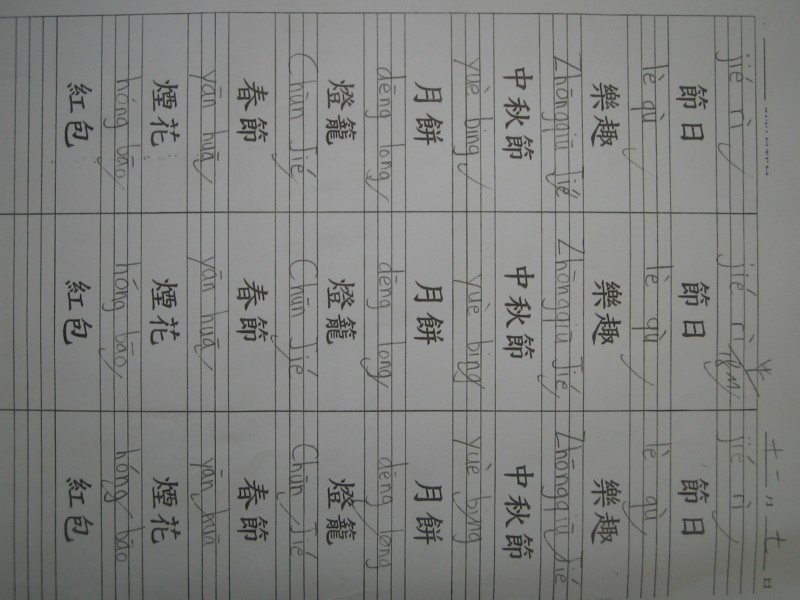 jié rì jié rì jié rì
節日 節日 節日
lè qù lè qù lè qù
樂趣 樂趣 樂趣
Zhōngqiū Jié Zhōngqiū Jié Zhōngqiū Jié
中秋節 中秋節 中秋節
yuè bing yuè bing yuè bing
月餅 月餅 月餅
dēng long dēng long dēng long
燈籠 燈籠 燈籠
Chūn Jié Chūn Jié Chūn Jié
春節 春節 春節
yān huā yān huā yān huā
煙花 煙花 煙花
hóng bāo hóng bāo hóng bāo
紅包 紅包 紅包